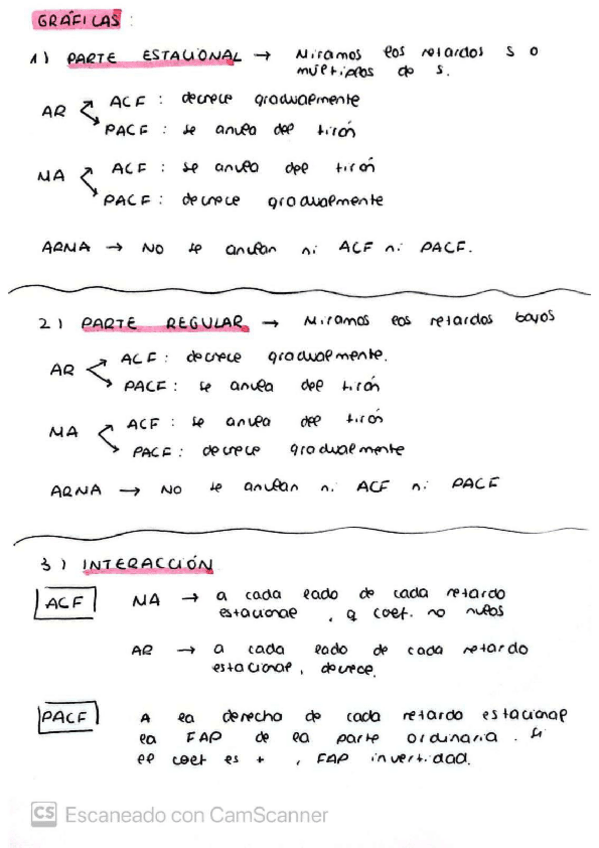 GRÁFICAS :
1) PARTE ESTACIONAL → Miramos los retardos s o
múltiplos de s.
AR ACF : decrece gradualmente
PACF : se anula del tirón
MA ACF : se anula del tirón
PACF : decrece gradualmente
ARMA → NO se anulan ni ACF ni PACF.
2) PARTE REGULAR → Miramos los retardos bajos
AR ACF : decrece gradualmente.
PACF : se anula del tirón
MA ACF : se anula del tirón
PACF : decrece gradualmente
ARMA → NO se anulan ni ACF ni PACF
3) INTERACCIÓN
ACF MA → a cada lado de cada retardo
estacional, q coef. no nulos
AR → a cada lado de cada retardo
estacional, decrece.
PACF A la derecha de cada retardo estacional
la FAP de la parte ordinaria. Si
el coef es +, FAP invertidad.
CS Escaneado con CamScanner